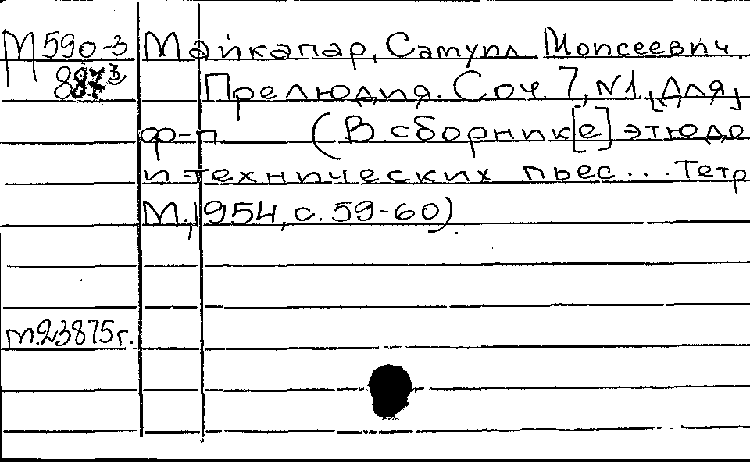 М590-3 Майкапар, Самуил Моисеевич.
Прелюдия. Соч 7, N1, [Для]
ф-п (В сборник[е] этюдо
и технических пьес... Тетр
М., 1954, с. 59-60)
м23875г.